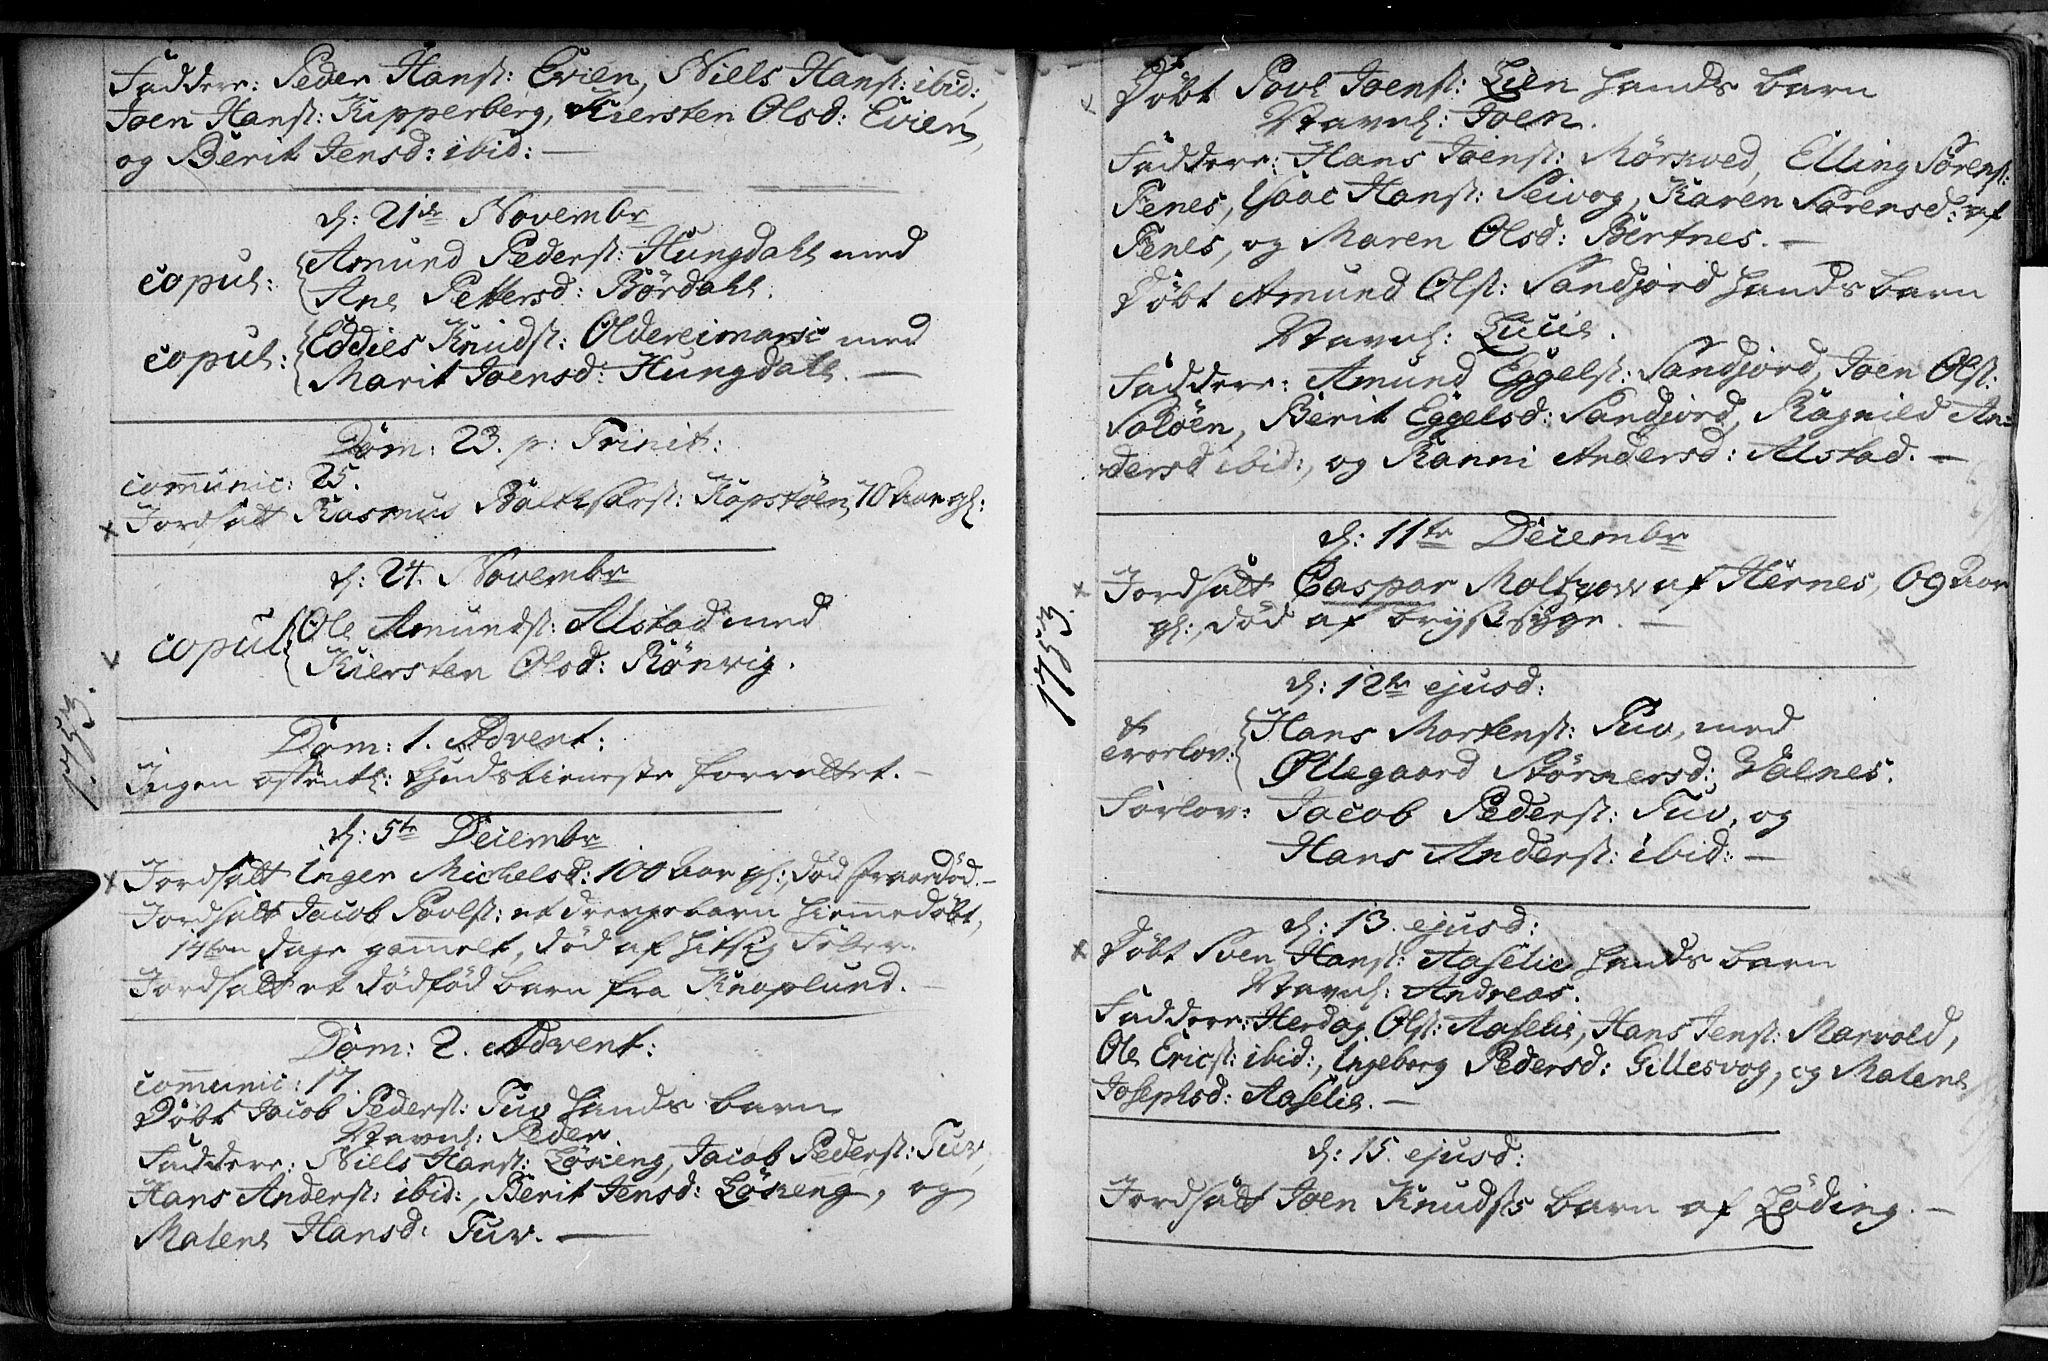 Faddere: Peder Hansſ: Evien, Niels Hansſ: ibid:,
Joen Hansſ: Kipperberg, Kiersten Olsd: Evien,
og Berit Jensd: ibid: —
d: 21de Novembr
copul: Amund Pedersſ: Hungdahl med
Ane Pettersd: Bördahl.
copul: Eddies Knudsſ: Oldereimarie med
Marit Joensd: Hungdahl. —
Dom: 23. p: Trinit:
com̄unic: 25.
x Jordfæstt Rasmus Balthsarsſ: Kopstöen, 70 Aar gl:
d: 24. Novembr
copul: Ole Amundsſ: Alstad med
Kiersten Olsd: Rönvig.
1753.
Dom: 1. Advent:
Ingen offentl: Gudstieneste forrettet. —
d: 5te Decembr
x Jordfæstt Inger Michelsd: 100 Aar gl:, död
Jordfæstt Jacob Povlsſ: et drengebarn hiemmedöbt,
14ten dage gam̄elt, död af hitsig Feber.
Jordfæstt et dödföd barn fra Knaplund. —
Dom: 2. Advent:
com̄unic: 17.
Döbt Jacob Pedersſ: Tuv hands barn
Navnl: Peder
Faddere: Niels Hansſ: Löseng, Jacob Pedersſ: Tuv,
Hans Andersſ: ibid:, Berit Jensd: Löseng, og
Malene Hansd: Tuv. —
Döbt Povl Joensſ: Lien hands barn
Navnl: Joen.
Faddere: Hans Joensſ: Mörkved, Elling Sörensſ:
Fenes, Isaac Hansſ: Seivog, Karen Sörensd: af
Fenes, og Maren Olsd: Bertnes. —
Döbt Amund Olsſ: Sandjord hands barn
Navnl: Lucie.
Faddere: Amund Eggelsſ: Sandjord, Joen Olsſ:
Soløen, Berit Eggelsd: Sandjord, Ragnild An-
dersd ibid:, og Ranni Andersd: Alstad. —
d: 11te Decembr
1753.
x Jordfæstt Caspar Moltzow af Hernes, 69 Aar
gl:, död af brystsyge. —
d: 12te ejusd:
trorlov: Hans Mortensſ: Tuv, med
Øllegaard Störmersd: Valnes.
Forlov: Jacob Pedersſ: Tuv, og
Hans Andersſ: ibid: —
d: 13. ejusd:
x Döbt Sven Hansſ: Aaselie hands barn
Navnl: Andreas.
Faddere: Herdog Olsſ: Aaselie, Hans Jensſ: Marvold,
Ole Ericsſ: ibid:, Ingeborg Pedersd: Gillesvog, og Malene
Josephsd: Aaselie. —
d: 15. ejusd:
Jordfæstt Joen Knudsſs barn af Löding. —